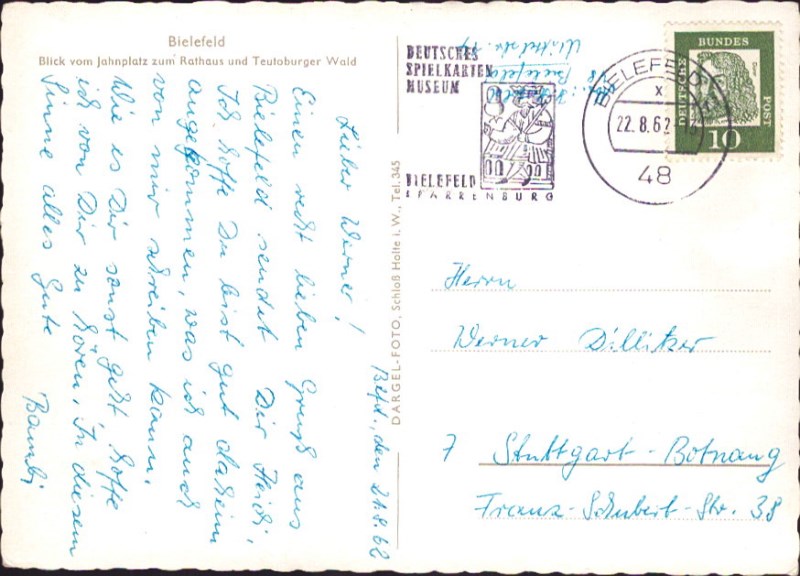 Bielefeld
Blick vom Jahnplatz zum Rathaus und Teutoburger Wald
Bfd., den 21.8.62
Lieber Werner!
Einen recht lieben Gruß aus
Bielefeld sendet Dir Heidi,
Ich hoffe Du bist gut daheim
angekommen, was ich auch
von mir schreiben kann.
Wie es Dir sonst geht hoffe
ich von Dir zu hören. In diesem
Sinne alles Gute
Bambi
DARGEL-FOTO, Schloß Holte i. W., Tel. 345
48 Bielefeld
DEUTSCHES
SPIELKARTEN
MUSEUM
BIELEFELD
SPARRENBURG
BIELEFELD
x
22.8.62
48
DEUTSCHE
BUNDES
POST
10
Herrn
Werner Dillitzer
7 Stuttgart-Botnang
Franz-Schubert-Str. 38